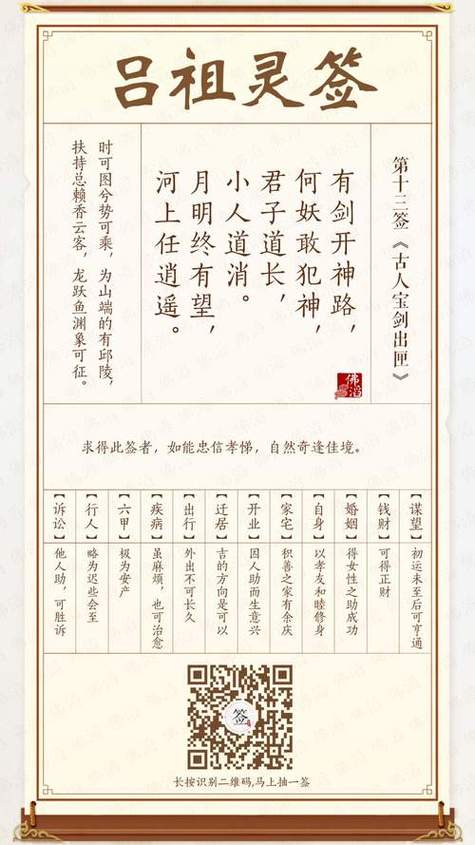 吕祖灵签
第十三签《古人宝剑出匣》
有剑开神路，
何妖敢犯神，
君子道长，
小人道消。
月明终有望，
河上任逍遥。
佛滔
时可图兮势可乘，为山端的有邱陵，
扶持总赖香云客，龙跃鱼渊象可征。
求得此签者，如能忠信孝悌，自然奇逢佳境。
【谋望】初运未至后可亨通
【钱财】可得正财
【婚姻】得女性之助成功
【自身】以孝友和睦修身
【家宅】积善之家有余庆
【开业】因人助而生意兴
【迁居】吉的方向是可以
【出行】外出不可长久
【疾病】虽麻烦，也可治愈
【六甲】极为安产
【行人】略为迟些会至
【诉讼】他人助，可胜诉
签
长按识别二维码,马上抽一签